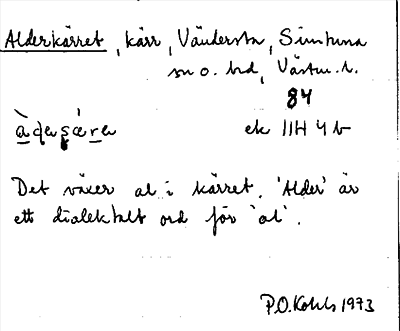 Alderkärret, kärr, Vändersta, Simtuna
sn o. hd, Västm. l.
84
àdeṣä́re ek 11H 4 b
Det växer al i kärret. 'Alder' är
ett dialektalt ord för 'al'.
P.O. Kohls 1973